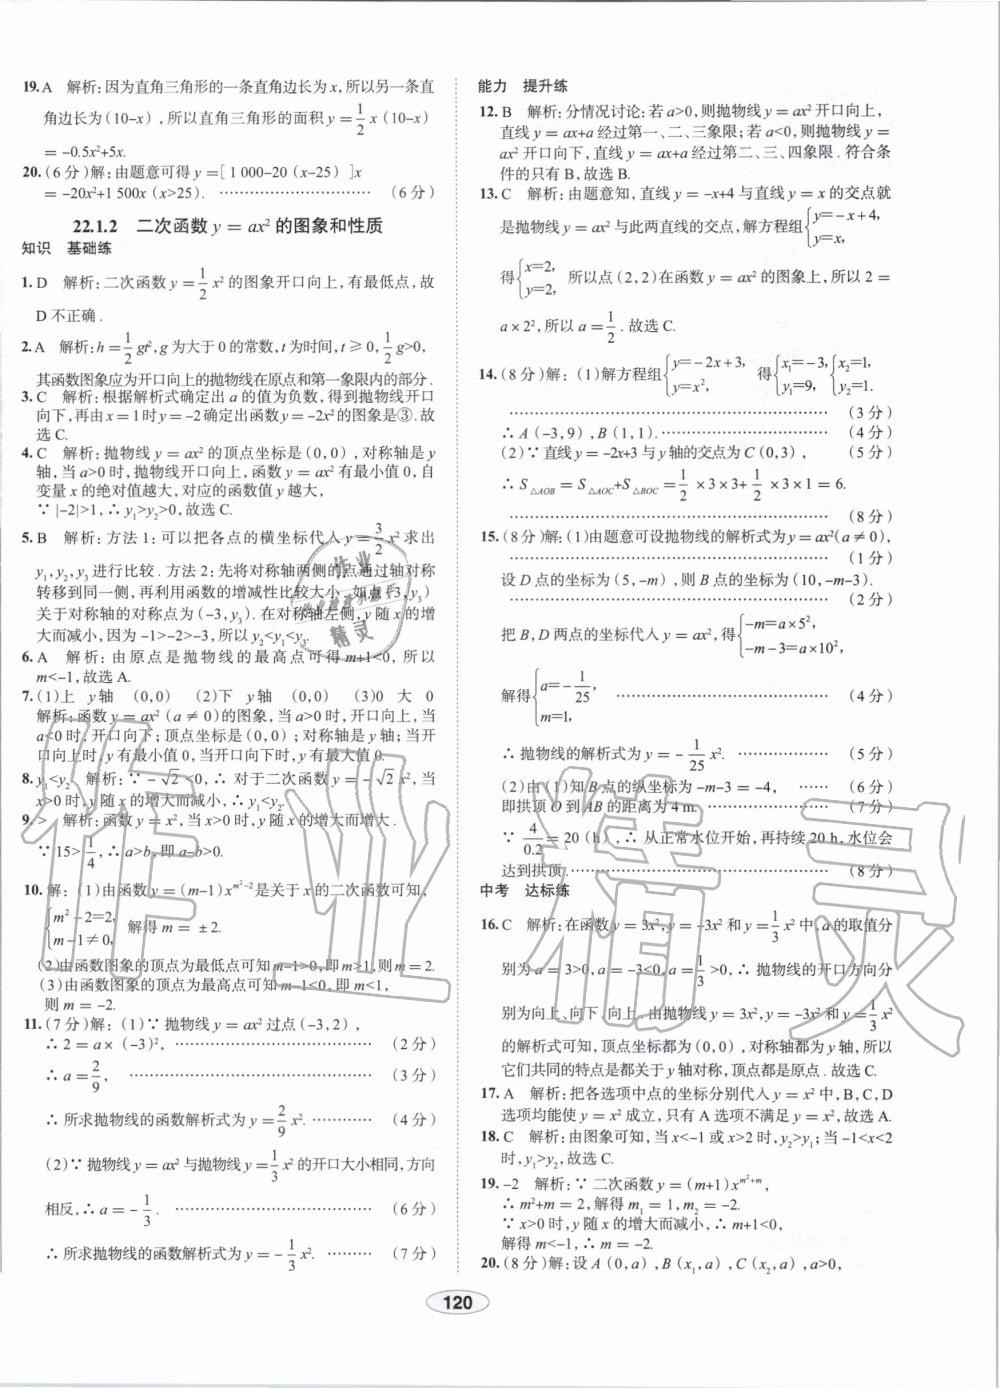 19.A 解析:因为直角三角形的一条直角边长为x,所以另一条直
角边长为(10-x),所以直角三角形的面积y=1/2 x(10-x)
=-0.5x²+5x.
20.(6分)解:由题意可得y=[1 000-20(x-25)]x
=-20x²+1 500x(x>25). ……………………(6分)
22.1.2 二次函数y=ax²的图象和性质
知识 基础练
1.D 解析:二次函数y=1/2 x²的图象开口向上,有最低点,故
D不正确.
2.A 解析:h=1/2 gt²,g为大于0的常数,t为时间,t≥0,1/2 g>0,
其函数图象应为开口向上的抛物线在原点和第一象限内的部分.
3.C 解析:根据解析式确定出a的值为负数,得到抛物线开口
向下,再由x=1时y=-2确定出函数y=-2x²的图象是③.故
选C.
4.C 解析:抛物线y=ax²的顶点坐标是(0,0),对称轴是y
轴,当a>0时,抛物线开口向上,函数y=ax²有最小值0,自
变量x的绝对值越大,对应的函数值y越大,
∵|-2|>1,∴y₁>y₂>0,故选C.
5.B 解析:方法1:可以把各点的横坐标代入y=3/2 x²求出
y₁,y₂,y₃进行比较.方法2:先将对称轴两侧的点通过轴对称
转移到同一侧,再利用函数的增减性比较大小,如点(3,y₃)
关于对称轴的对称点为(-3,y₃).在对称轴左侧,y随x的增
大而减小,因为-1>-2>-3,所以y₂<y₁<y₃.
6.A 解析:由原点是抛物线的最高点可得m+1<0,所以
m<-1,故选A.
7.(1)上 y轴 (0,0) (2)下 y轴 (0,0) (3)0 大 0
解析:函数y=ax²(a≠0)的图象,当a>0时,开口向上,当
a<0时,开口向下;顶点坐标是(0,0);对称轴是y轴;当开
口向上时,y有最小值0,当开口向下时,y有最大值0.
8.y₁<y₂ 解析:∵-√2<0,∴对于二次函数y=-√2 x²,当
x>0时,y随x的增大而减小,∴y₁<y₂.
9.> 解析:函数y=x²,当x>0时,y随x的增大而增大.
∵15>1/4,∴a>b,即a-b>0.
10.解:(1)由函数y=(m-1)x^(m²-2)是关于x的二次函数可知,
{m²-2=2, m-1≠0, 解得m=±2.
(2)由函数图象的顶点为最低点可知m-1>0,即m>1,则m=2.
(3)由函数图象的顶点为最高点可知m-1<0,即m<1,
则m=-2.
11.(7分)解:(1)∵抛物线y=ax²过点(-3,2),
∴2=a×(-3)², ……………………(2分)
∴a=2/9, ……………………(3分)
∴所求抛物线的函数解析式为y=2/9 x². …………(4分)
(2)∵抛物线y=ax²与抛物线y=1/3 x²的开口大小相同,方向
相反,∴a=-1/3. ……………………(6分)
∴所求抛物线的函数解析式为y=-1/3 x². …………(7分)
能力 提升练
12.B 解析:分情况讨论:若a>0,则抛物线y=ax²开口向上,
直线y=ax+a经过第一、二、三象限;若a<0,则抛物线y=ax²
开口向下,直线y=ax+a经过第二、三、四象限.符合条
件的只有B,故选B.
13.C 解析:由题意知,直线y=-x+4与直线y=x的交点就
是抛物线y=ax²与此两直线的交点,解方程组{y=-x+4, y=x,
得{x=2, y=2, 所以点(2,2)在函数y=ax²的图象上,所以2=
a×2²,所以a=1/2.故选C.
14.(8分)解:(1)解方程组{y=-2x+3, y=x², 得{x₁=-3, y₁=9, {x₂=1, y₂=1.
……………………(3分)
∴A(-3,9),B(1,1). ……………………(4分)
(2)∵直线y=-2x+3与y轴的交点为C(0,3), (5分)
∴S△AOB=S△AOC+S△BOC=1/2×3×3+1/2×3×1=6.
……………………(8分)
15.(8分)解:(1)由题意可设抛物线的解析式为y=ax²(a≠0).
……………………(1分)
设D点的坐标为(5,-m),则B点的坐标为(10,-m-3).
……………………(2分)
把B,D两点的坐标代入y=ax²,得{-m=a×5², -m-3=a×10²,
解得{a=-1/25, m=1, ……………………(4分)
∴抛物线的解析式为y=-1/25 x². …………(5分)
(2)由(1)知B点的纵坐标为-m-3=-4, ……(6分)
即拱顶O到AB的距离为4 m. ……………………(7分)
∵4/0.2=20(h),∴从正常水位开始,再持续20 h,水位会
达到拱顶. ……………………(8分)
中考 达标练
16.C 解析:在函数y=3x²,y=-3x²和y=1/3 x²中,a的取值分
别为a=3>0,a=-3<0,a=1/3>0,∴抛物线的开口方向分
别为向上、向下、向上;由抛物线y=3x²,y=-3x²和y=1/3 x²
的解析式可知,顶点坐标都为(0,0),对称轴都为y轴,所以
它们共同的特点是都关于y轴对称,顶点都是原点.故选C.
17.A 解析:把各选项中点的坐标分别代入y=x²中,B,C,D
选项均能使y=x²成立,只有A选项不满足y=x²,故选A.
18.C 解析:由图象可知,当x<-1或x>2时,y₂>y₁;当-1<x<2
时,y₁>y₂,故选C.
19.-2 解析:∵二次函数y=(m+1)x^(m²+m),
∴m²+m=2,解得m₁=1,m₂=-2.
∵x>0时,y随x的增大而减小,∴m+1<0,
解得m<-1,∴m=-2.
20.(8分)解:设A(0,a),B(x₁,a),C(x₂,a),
120
作业精灵
作业精灵